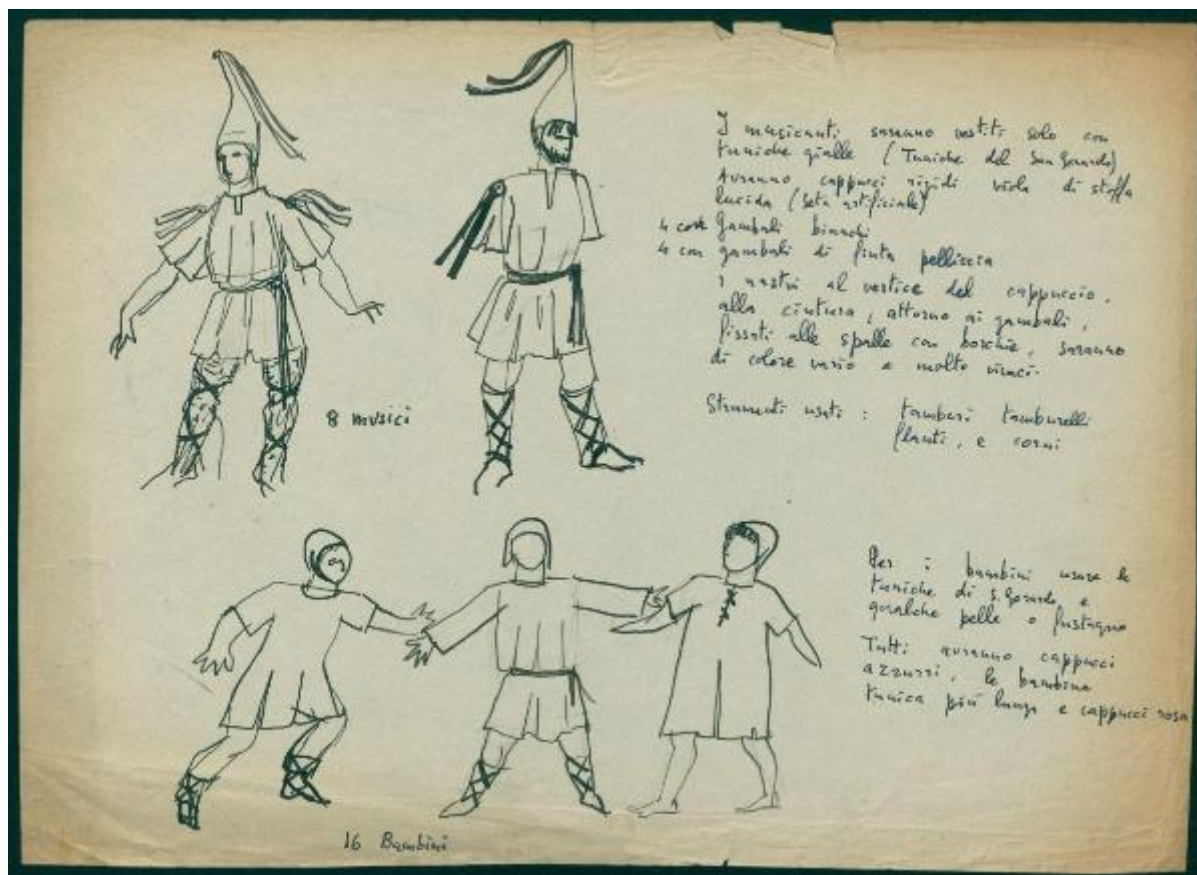 I musicanti saranno vestiti solo con
tuniche gialle (Tuniche del San Gerardo)
Avranno cappucci rigidi viola di stoffa
lucida (seta artificiale)
4 con Gambali bianchi
4 con gambali di finta pelliccia
I nastri al vertice del cappuccio,
alla cintura, attorno ai gambali,
fissati alle spalle con borchie, saranno
di colore vario e molto vivaci.
Strumenti usati : tamburi tamburelli
flauti, e corni
8 musici
Per i bambini usare le
tuniche di S. Gerardo e
qualche pelle o fustagno
Tutti avranno cappucci
azzurri, le bambine
tunica più lunga e cappucci rosa
16 Bambini